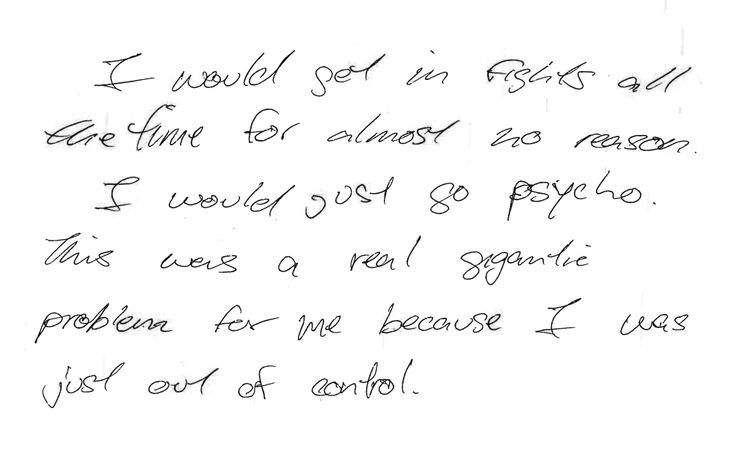 I would get in fights all
the time for almost no reason.
I would just go psycho.
This was a real gigantic
problem for me because I was
just out of control.